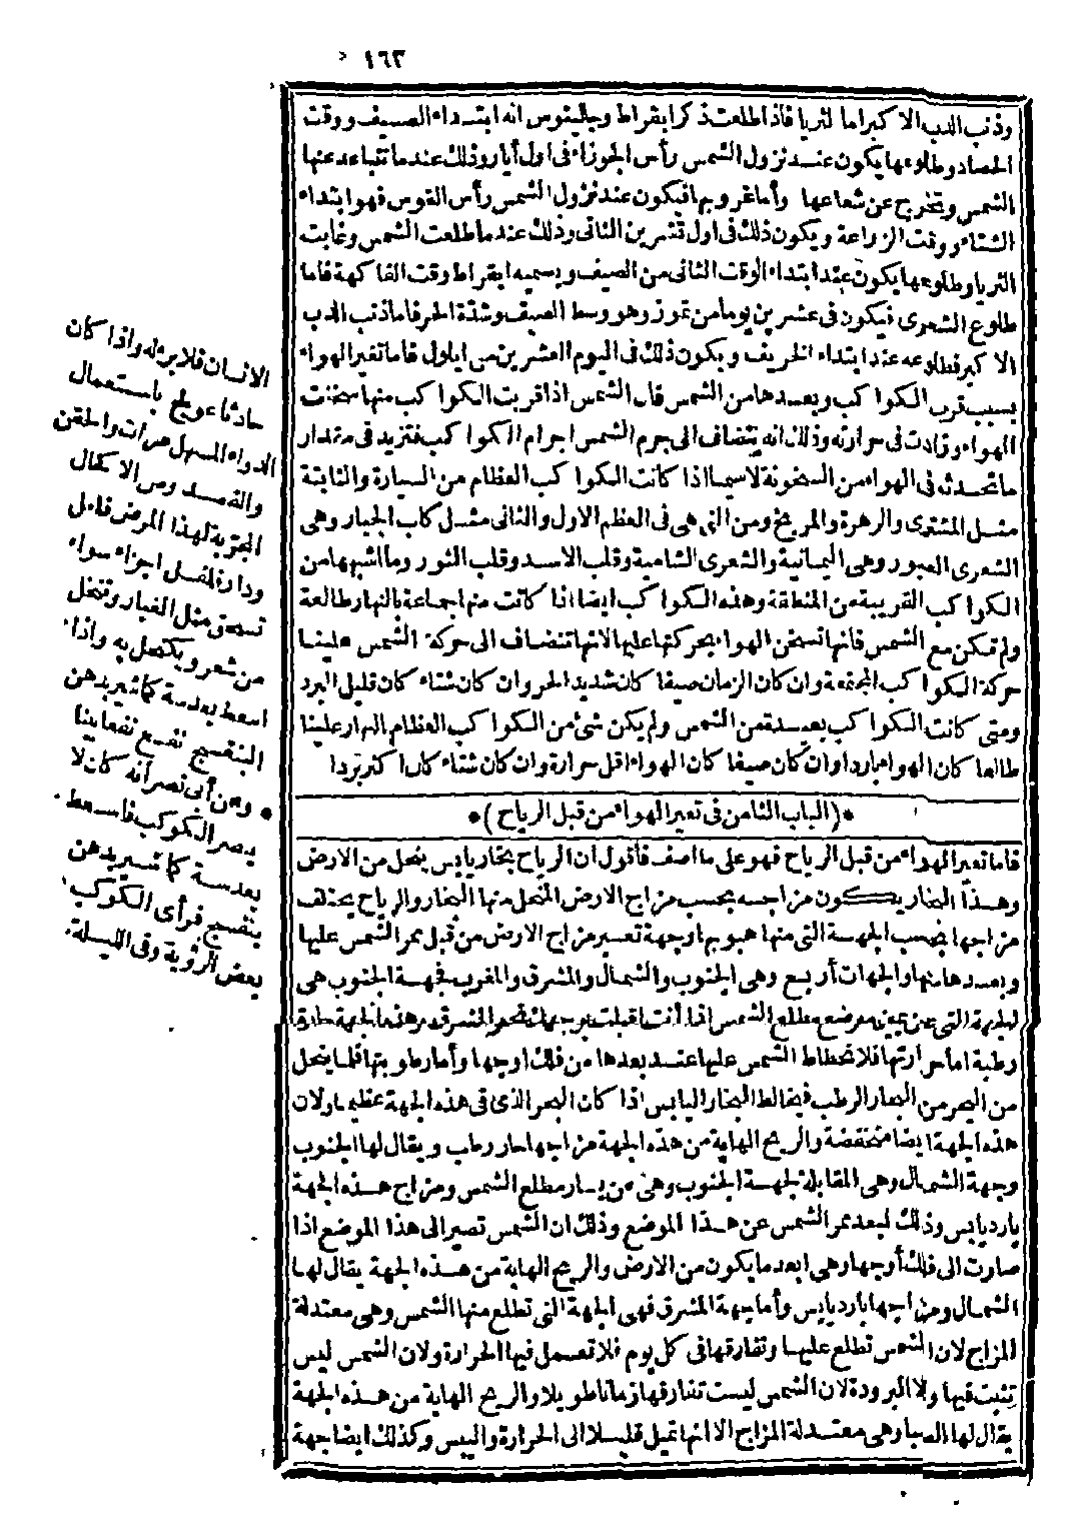 ١٦٣
وذنب الدب الاكبر اما لثريا فاذا طلعت ذكر ابقراط وجالينوس انه ابتداء الصيف ووقت
الحصاد وطلوعها يكون عند نزول الشمس رأس الجوزاء فى اول أيار وذلك عندما تتباعد عنها
الشمس وتخرج عن شعاعها وأما غروبها فيكون عند نزول الشمس رأس القوس فهو ابتداء
الشتاء ووقت الزراعة ويكون ذلك فى اول تشرين الثانى وذلك عندما طلعت الشمس وغابت
الثريا وطلوعها يكون عند ابتداء الوقت الثانى من الصيف ويسميه ابقراط وقت الفاكهة فاما
طلوع الشعرى فيكون فى عشرين يوما من تموز وهو وسط الصيف وشدة الحر فاما ذنب الدب
الاكبر فطلوعه عند ابتداء الخريف ويكون ذلك فى اليوم العشرين من ايلول فاما تغير الهواء
بسبب قرب الكواكب وبعدها من الشمس فان الشمس اذا قربت الكواكب منها سخنت
الهواء وزادت فى حرارته وذلك انه ينضاف الى جرم الشمس اجرام الكواكب فتزيد فى مقدار
ما تحدثه فى الهواء من السخونة لا سيما اذا كانت الكواكب العظام من السيارة والثابتة
مثل المشترى والزهرة والمريخ ومن التى هى فى العظم الاول والثانى مثل كلب الجبار وهى
الشعرى العبور وهى اليمانية والشعرى الشامية وقلب الاسد وقلب الثور وما اشبهها من
الكواكب القريبة من المنطقة وهذه الكواكب ايضا اذا كانت منها جماعة بالنهار طالعة
ولم تكن مع الشمس فانها تسخن الهواء بحركتها عليها لانها تنضاف الى حركة الشمس علينا
حركة الكواكب المجتمعة وان كان الزمان صيفا كان شديد الحر وان كان شتاء كان قليل البرد
ومتى كانت الكواكب بعيدة من الشمس ولم يكن شئ من الكواكب العظام النهار علينا
طالعا كان الهواء باردا وان كان صيفا كان الهواء اقل حرارة وان كان شتاء كان اكثر بردا
*(الباب الثامن فى تغير الهواء من قبل الرياح)*
فاما تغير الهواء من قبل الرياح فهو على ما اصف فاقول ان الرياح بخار يابس ينحل من الارض
وهذا البخار يكون مزاجه بحسب مزاج الارض المنحل منها البخار والرياح يختلف
مزاجها بحسب الجهة التى منها هبوبها وجهة تغيير مزاج الارض من قبل ممر الشمس عليها
وبعدها منها والجهات أربع وهى الجنوب والشمال والمشرق والمغرب فجهة الجنوب هى
الجهة التى عن يمين موضع مطلع الشمس اذا أنت اقبلت بوجهك نحو المشرق وهذه الجهة حارة
رطبة اما حرارتها فلانحطاط الشمس عليها عند بعدها من فلك اوجها وأما رطوبتها فلما ينحل
من البحر من البخار الرطب فيخالط البخار اليابس اذا كان البحر الذى فى هذه الجهة عظيما ولان
هذه الجهة ايضا منخفضة والريح الهابة من هذه الجهة مزاجها حار رطب ويقال لها الجنوب
وجهة الشمال وهى المقابلة لجهة الجنوب وهى عن يسار مطلع الشمس ومزاج هذه الجهة
بارد يابس وذلك لبعد ممر الشمس عن هذا الموضع وذلك ان الشمس تصير الى هذا الموضع اذا
صارت الى فلك أوجها وهى ابعد ما يكون من الارض والريح الهابة من هذه الجهة يقال لها
الشمال ومزاجها بارد يابس وأما جهة المشرق فهى الجهة التى تطلع منها الشمس وهى معتدلة
المزاج لان الشمس تطلع عليها وتفارقها فى كل يوم فلا تعمل فيها الحرارة ولان الشمس ليس
تثبت فيها ولا البرودة لان الشمس ليست تفارقها زمانا طويلا والريح الهابة من هذه الجهة
يقال لها الصبا وهى معتدلة المزاج الا انها تميل قليلا الى الحرارة واليبس وكذلك ايضا جهة
الانسان فلا برء له واذا كان
حادثا عولج باستعمال
الدواء المسهل مرات والحقن
والفصد ومن الاكحال
المجربة لهذا المرض فلفل
ودار فلفل اجزاء سواء
تسحق مثل الغبار وتنخل
من شعر ويكتحل به واذا
اسعط بعدسة كما شير بدهن
البنفسج نفع نفعا بينا
* ومن أتى نصرانه كان لا
يبصر الكوكب فاسعط
بعدسة كما شير بدهن
بنفسج فرأى الكوكب
بعض الرؤية وفى الليلة